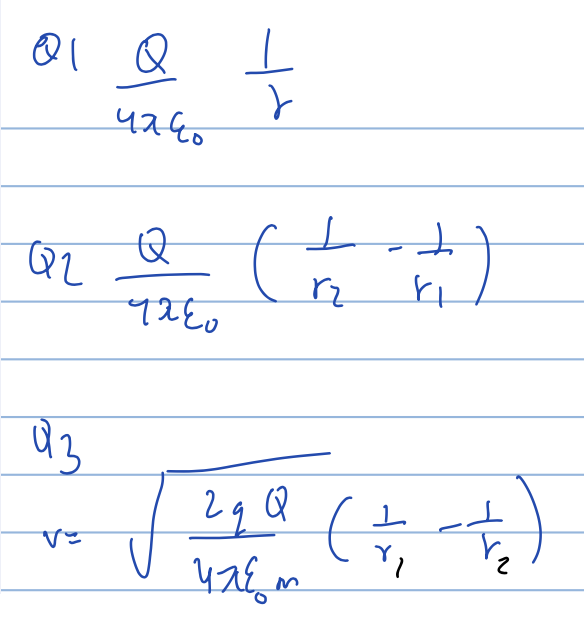 Q1 Q/(4πε₀) 1/r
Q2 Q/(4πε₀) (1/r₂ - 1/r₁)
Q3
v = √(2qQ/(4πε₀m) (1/r₁ - 1/r₂))